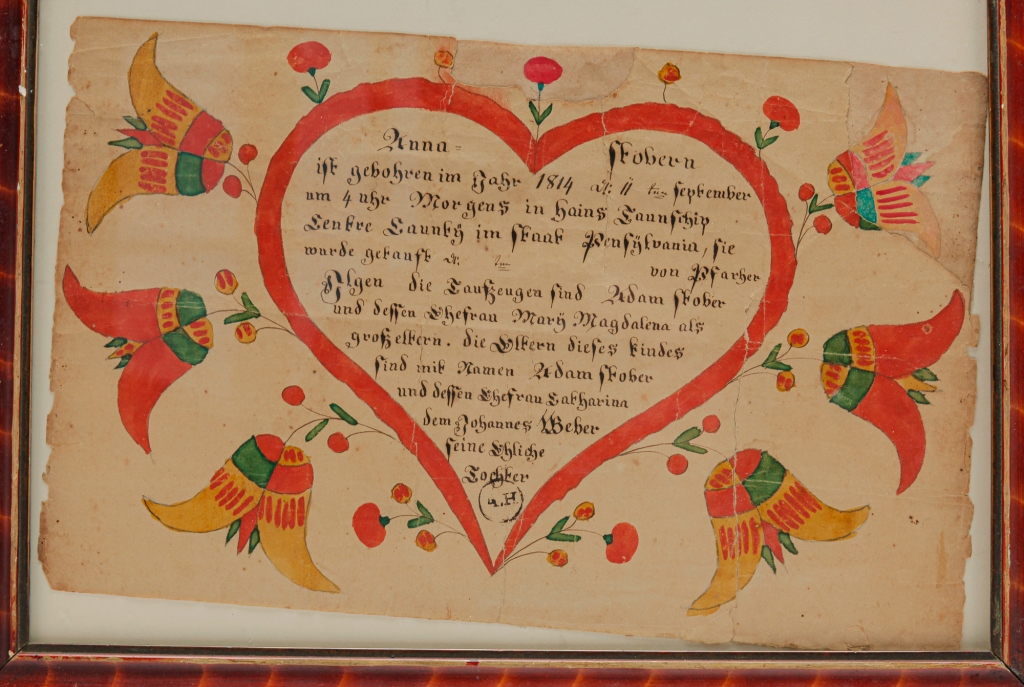 Anna= Stovern
ist gebohren im Jahr 1814 d: 11 ten September
um 4 uhr Morgens in Hains Taunschip
Centre Caunty im staat Pensÿlvania, sie
wurde getauft d: ten von Pfarher
Ilgen die Taufzeugen sind Adam stover
und dessen Ehefrau Marÿ Magdalena als
großeltern. die Eltern dieses kindes
sind mit Namen Adam stover
und dessen Ehefrau Catharina
dem Johannes Weber
seine Ehliche
Tochter